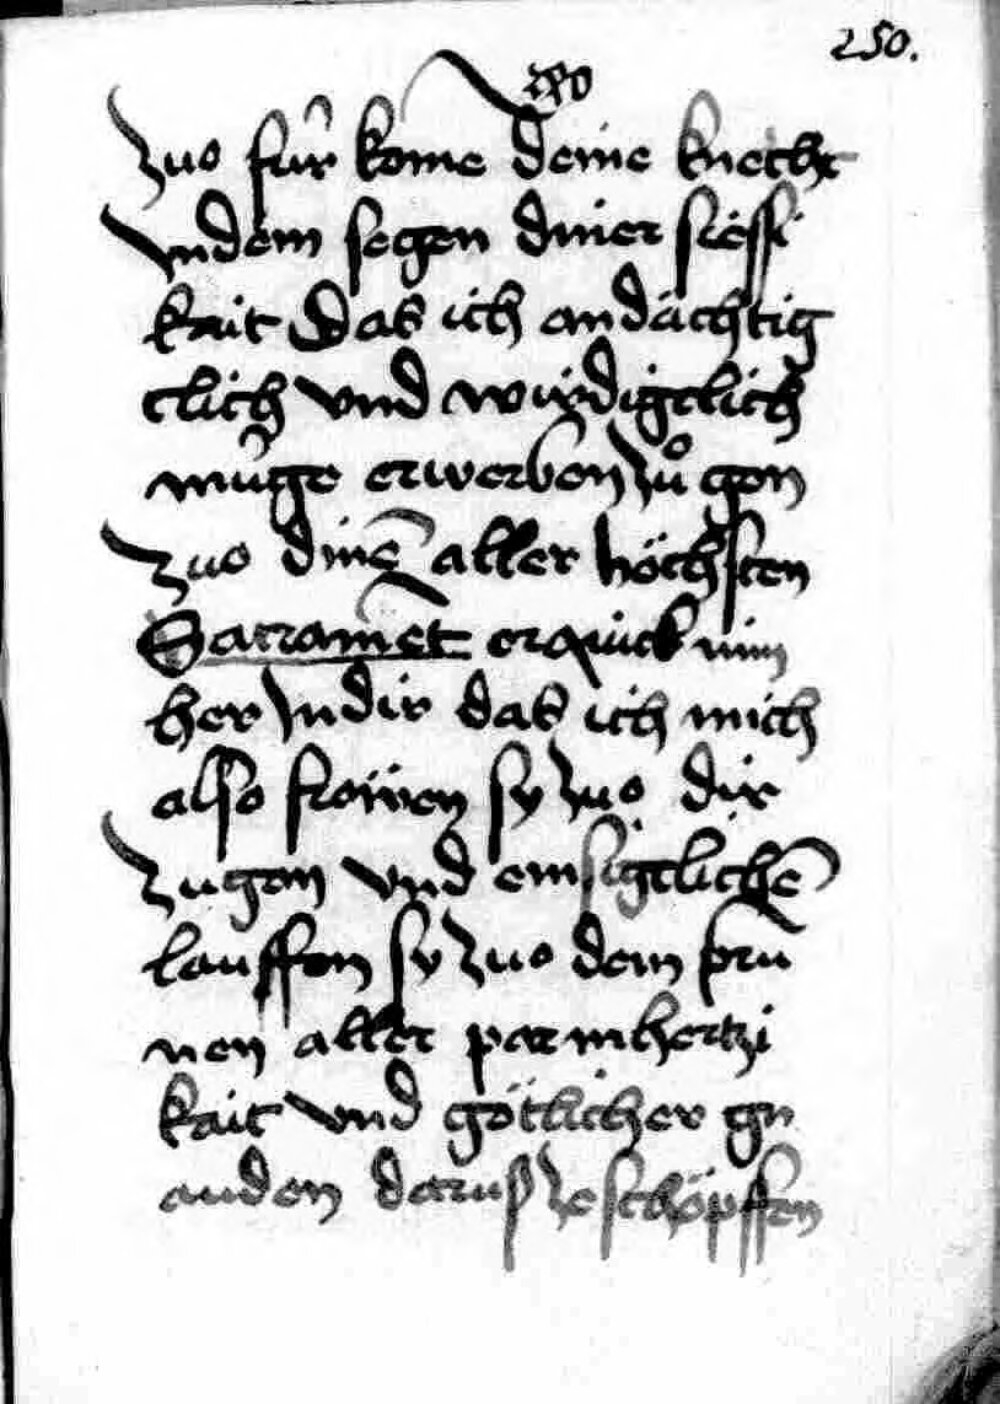 250.
Zuo für kome deine knecht
Vndem segen diner siessi
kait Das ich andächtig
clich vnd wirdigclich
müge erwerben zů gon
Zuo dinē aller höchsten
Sacramēt erquick min
her zu dir das ich mich
also sy zuo dir
Zugon vnd emsigclichē
lauffen sy zuo dem prū
nen aller parmhertzi
kait vnd götlicher gn
auden daruß ze schöpffen